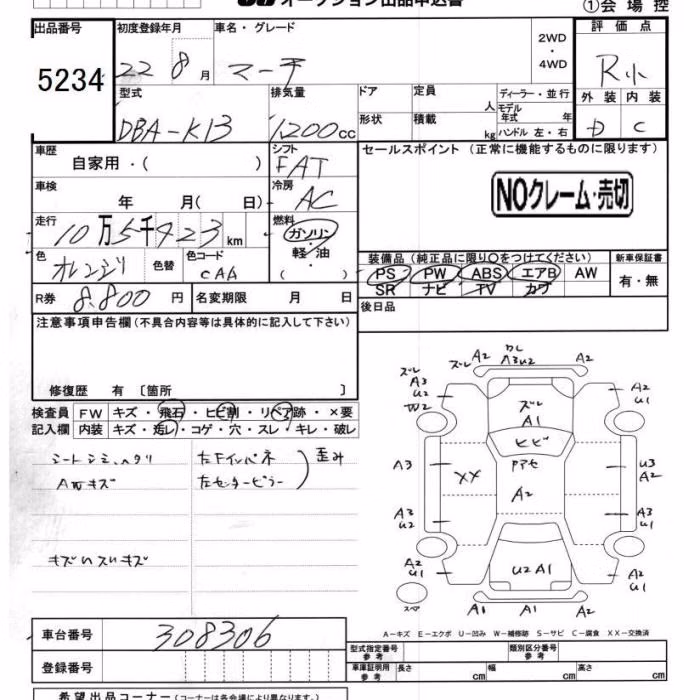 オークション出品申込書 ①会場控
出品番号 初度登録年月 車名・グレード 2WD・4WD 評価点
5234 22 8月 マーチ R小
型式 排気量 ドア 定員 人 ディーラー・並行 外装 内装
DBA-K13 1200cc 形状 積載 kg モデル年式 年式 ハンドル 左・右 D C
車歴 シフト セールスポイント(正常に機能するものに限ります)
自家用・( ) FAT
車検 冷房 NOクレーム・売切
年 月( 日) AC
走行 燃料
10万5千923km ガソリン・軽油・( )
色 オレンジ 色替 色コード CAA
装備品(純正品に限り○をつけてください) 新車保証書
PS PW ABS エアB AW 有・無
SR ナビ TV カワ
R券 8.800円 名変期限 月 日 後日品
注意事項申告欄(不具合内容等は具体的に記入して下さい)
修復歴 有〔箇所 〕
検査員 FW キズ・飛石・ヒビ割・リペア跡・×要
記入欄 内装 キズ・汚レ・コゲ・穴・スレ・キレ・破レ
シートシミ、ヘタリ 左Fインパネ 歪み
A Wキズ 左センターピラー
キズ ハスリキズ
ズレ A2 クレ A3U2 A2
ズレ A3 U2 W2 ズレ A1 A2 U1
ヒビ
A3 XX Pアセ U3 A2
A2
A3 U2 A3 U1
A2 U1 U2A1 A2 U1
スペア A1 A1 A2
A-キズ E-エクボ U-凹み W-補修跡 S-サビ C-腐食 XX-交換済
車台番号 308306
登録番号
型式指定番号 参考 類別区分番号 参考
車庫証明用 参考 長さ cm 幅 cm 高さ cm
希望出品コーナー(コーナーは各会場により異なります。)